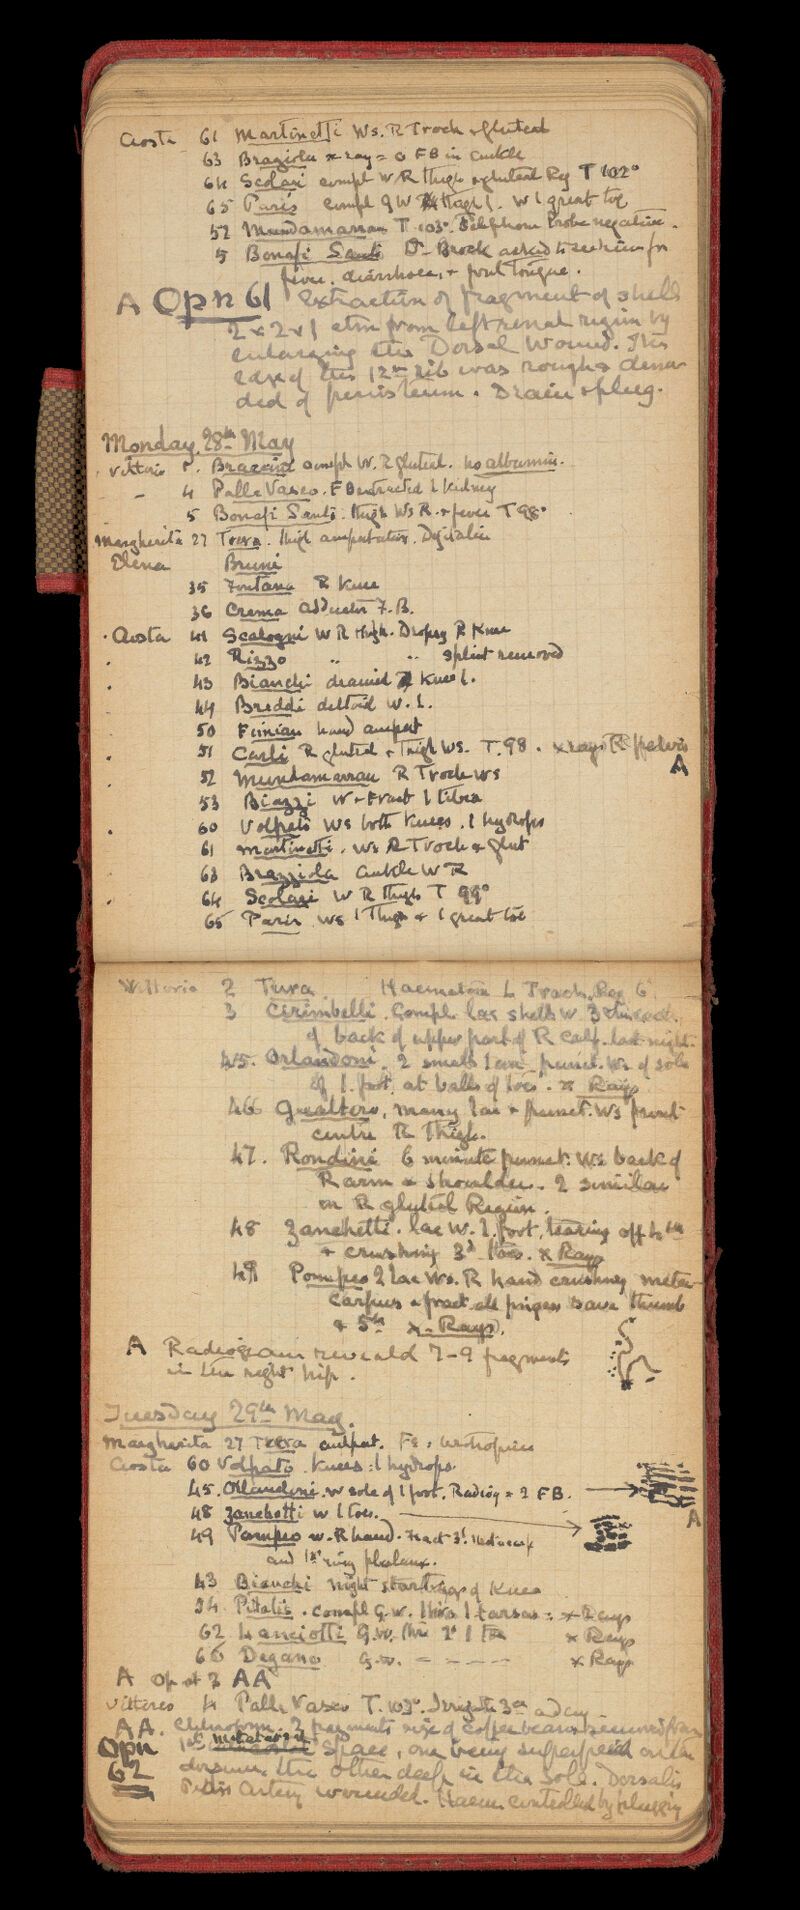 Aosta 61 Martinetti Ws. R Troch & gluteal
63 Braziola x ray = 0 FB in ankle
64 Scolari compl W R thigh & gluteal Reg T 102°
65 Paris compl G W thigh l. W l great toe
52 Mundamarran T 103°. Telephone Probe negative.
5 Bonafi Santi Dr Brock asked to see him for
fever, diarrhoea, & foul tongue.
A Opn 61 Extraction of fragment of shell
2 x 2 x 1 ctm from left renal region by
enlarging the Dorsal Wound. The
edge of the 12th rib was rough & denu-
ded of periosteum. Drain & plug.
Monday 28th May
Vittorio compl W. R gluteal. no albumin.
- 4 Palle Vasco. F B extracted L kidney
5 Bonafi Santi. thigh Ws R. & fever T 98°
Margherita 27 Terra. thigh amputation. Digitalin
Elena Bruni
35 Fontana R Knee
36 Crema adductor F.B.
Aosta 41 Scalogni W R thigh. Dropsy R Knee
42 Rizzo " " splint removed
43 Bianchi drained Knee l.
44 Breddi deltoid W. l.
50 hand amput
51 Carli R gluteal & thigh Ws. T. 98. x rays R pelvis
A
52 Mundamarran R Troch Ws
53 Biazzi W & Fract l tibia
60 Volpato Ws both Knees. l hydrops
61 Martinetti. Ws R Troch & glut
63 Brazziola ankle W R
64 Scolari W R thigh T 99°
65 Paris Ws l thigh & l great toe
Vittorio 2 Tura Haematoma L Troch. Reg 6
3 Cirimbelli. Compl lac shell W 3
of back of upper part of R calf. last night.
45. Orlandoni. 2 small lac punct. Ws of sole
of l. foot, at balls of toes. x Rays
46 Gualtero, many lac & punct. Ws front
centre R Thigh.
47. Rondini 6 minute punct. Ws back of
R arm & shoulder. 2 similar
in R gluteal Region.
48 Zanchetti. lac W. l. foot, tearing off 4th
& crushing 3d toes. x Rays
49 Pompeo 2 lac Ws. R hand crushing meta-
carpus & fract all fingers save thumb
& 5th x-Rays.
A Radiogram reveald 7-9 fragments
in the right hip.
Tuesday 29th May.
Margherita 27 Terra amput.
Aosta 60 Volpato. Knees: l hydrops.
45. Orlandoni. W sole of l foot. Radiog = 2 FB.
48 Zanchetti W l toes.
A
49 Pompeo W. R hand. Fract 3d
and 1st ring phalanx.
43 Bianchi night startings of Knee
34 Pitalis. compl G. W. thro l tarsus: x Rays
62 Lanciotti G. W. thro x Rays
66 Degano G. W. - - - - x Rays
A Op at 3 AA
Vittorio 4 Palle Vasco T. 103°. Irrigate 3ce a day.
AA. Chloroform. 2 fragments size of coffee beans removed from
Opn 1st metatarsal space, one being superficial on the
62 dorsum, the other deep in the sole. Dorsalis
Pedis Artery wounded. Haem. controlled by plugging